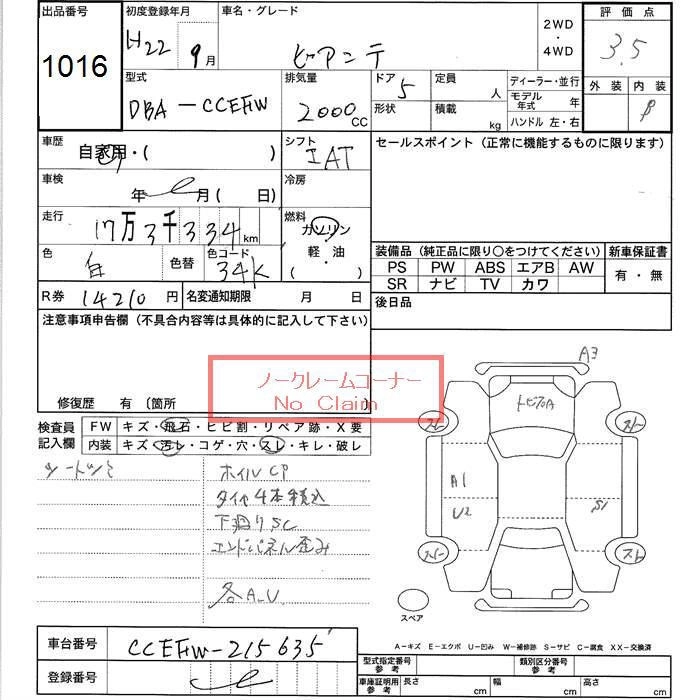 出品番号 1016
初度登録年月 H22 9月
車名・グレード ビアンテ
2WD・4WD
評価点 3.5
外装 内装 β
型式 DBA-CCEFW
排気量 2000CC
ドア 5
形状
定員 人
積載 kg
ディーラー・並行
モデル年式 年
ハンドル 左・右
車歴 自家用・( )
シフト IAT
セールスポイント (正常に機能するものに限ります)
車検 年 月 ( 日)
冷房
走行 17万3千334km
燃料 ガソリン
軽・油
( ・ )
色 白
色替
色コード 34K
装備品 (純正品に限り〇をつけてください)
新車保証書
PS PW ABS エアB AW
有・無
SR ナビ TV カワ
R券 14210円
名変通知期限 月 日
後日品
注意事項申告欄 (不具合内容等は具体的に記入して下さい)
ノークレームコーナー
No Claim
修復歴 有 〔箇所
検査員記入欄
FW キズ・飛石・ヒビ割・リペア跡・X要
内装 キズ・汚レ・コゲ・穴・スレ・キレ・破レ
シートシミ
ホイルCP
タイヤ4本積込
下廻りSC
エンドパネル歪み
各A.U.
A3
トビ石A
A1
U2
S1
スペア
A-キズ E-エクボ U-凹み W-補修跡 S-サビ C-腐食 XX-交換済
車台番号 CCEFW-215635
登録番号
型式指定番号 参考
類別区分番号 参考
車庫証明用 参考
長さ cm
幅 cm
高さ cm